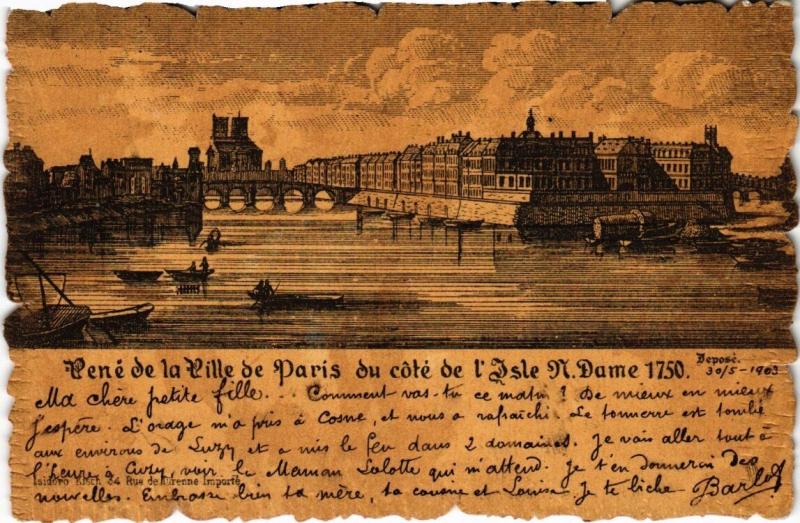 Vené de la Ville de Paris du côté de l'Isle N. Dame 1750.
Deposé.
30/5-1903
Ma chère petite fille... Comment vas-tu ce matin ? De mieux en mieux
j'espère. L'orage m'a pris à Cosne, et nous a rafraîchi. Le tonnerre est tombé
aux environs de Luzy et a mis le feu dans 2 domaines. Je vais aller tout à
l'heure à voir le Maman Lolotte qui m'attend. Je t'en donnerai des
Isidoro Kisch 34 Rue de Turenne Importé
nouvelles. Embrasse bien ta mère, ta cousine et Louise. Je te biche